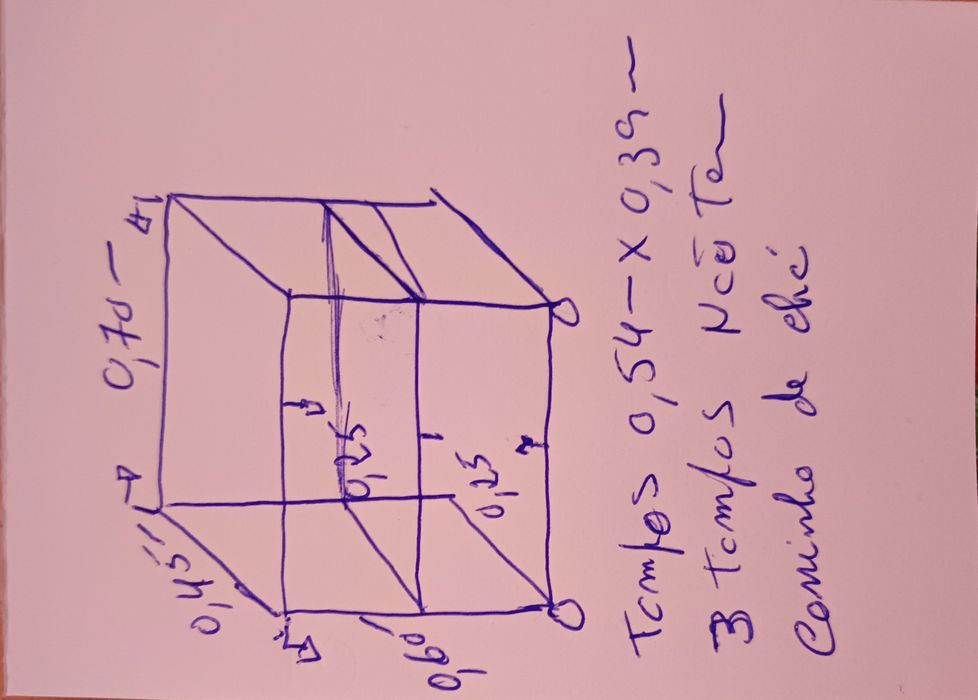 0,70
0,45
0,25
0,25
0,60
Tampos 0,54 - x 0,39
3 Tampos Não Tem
Carrinho de chá